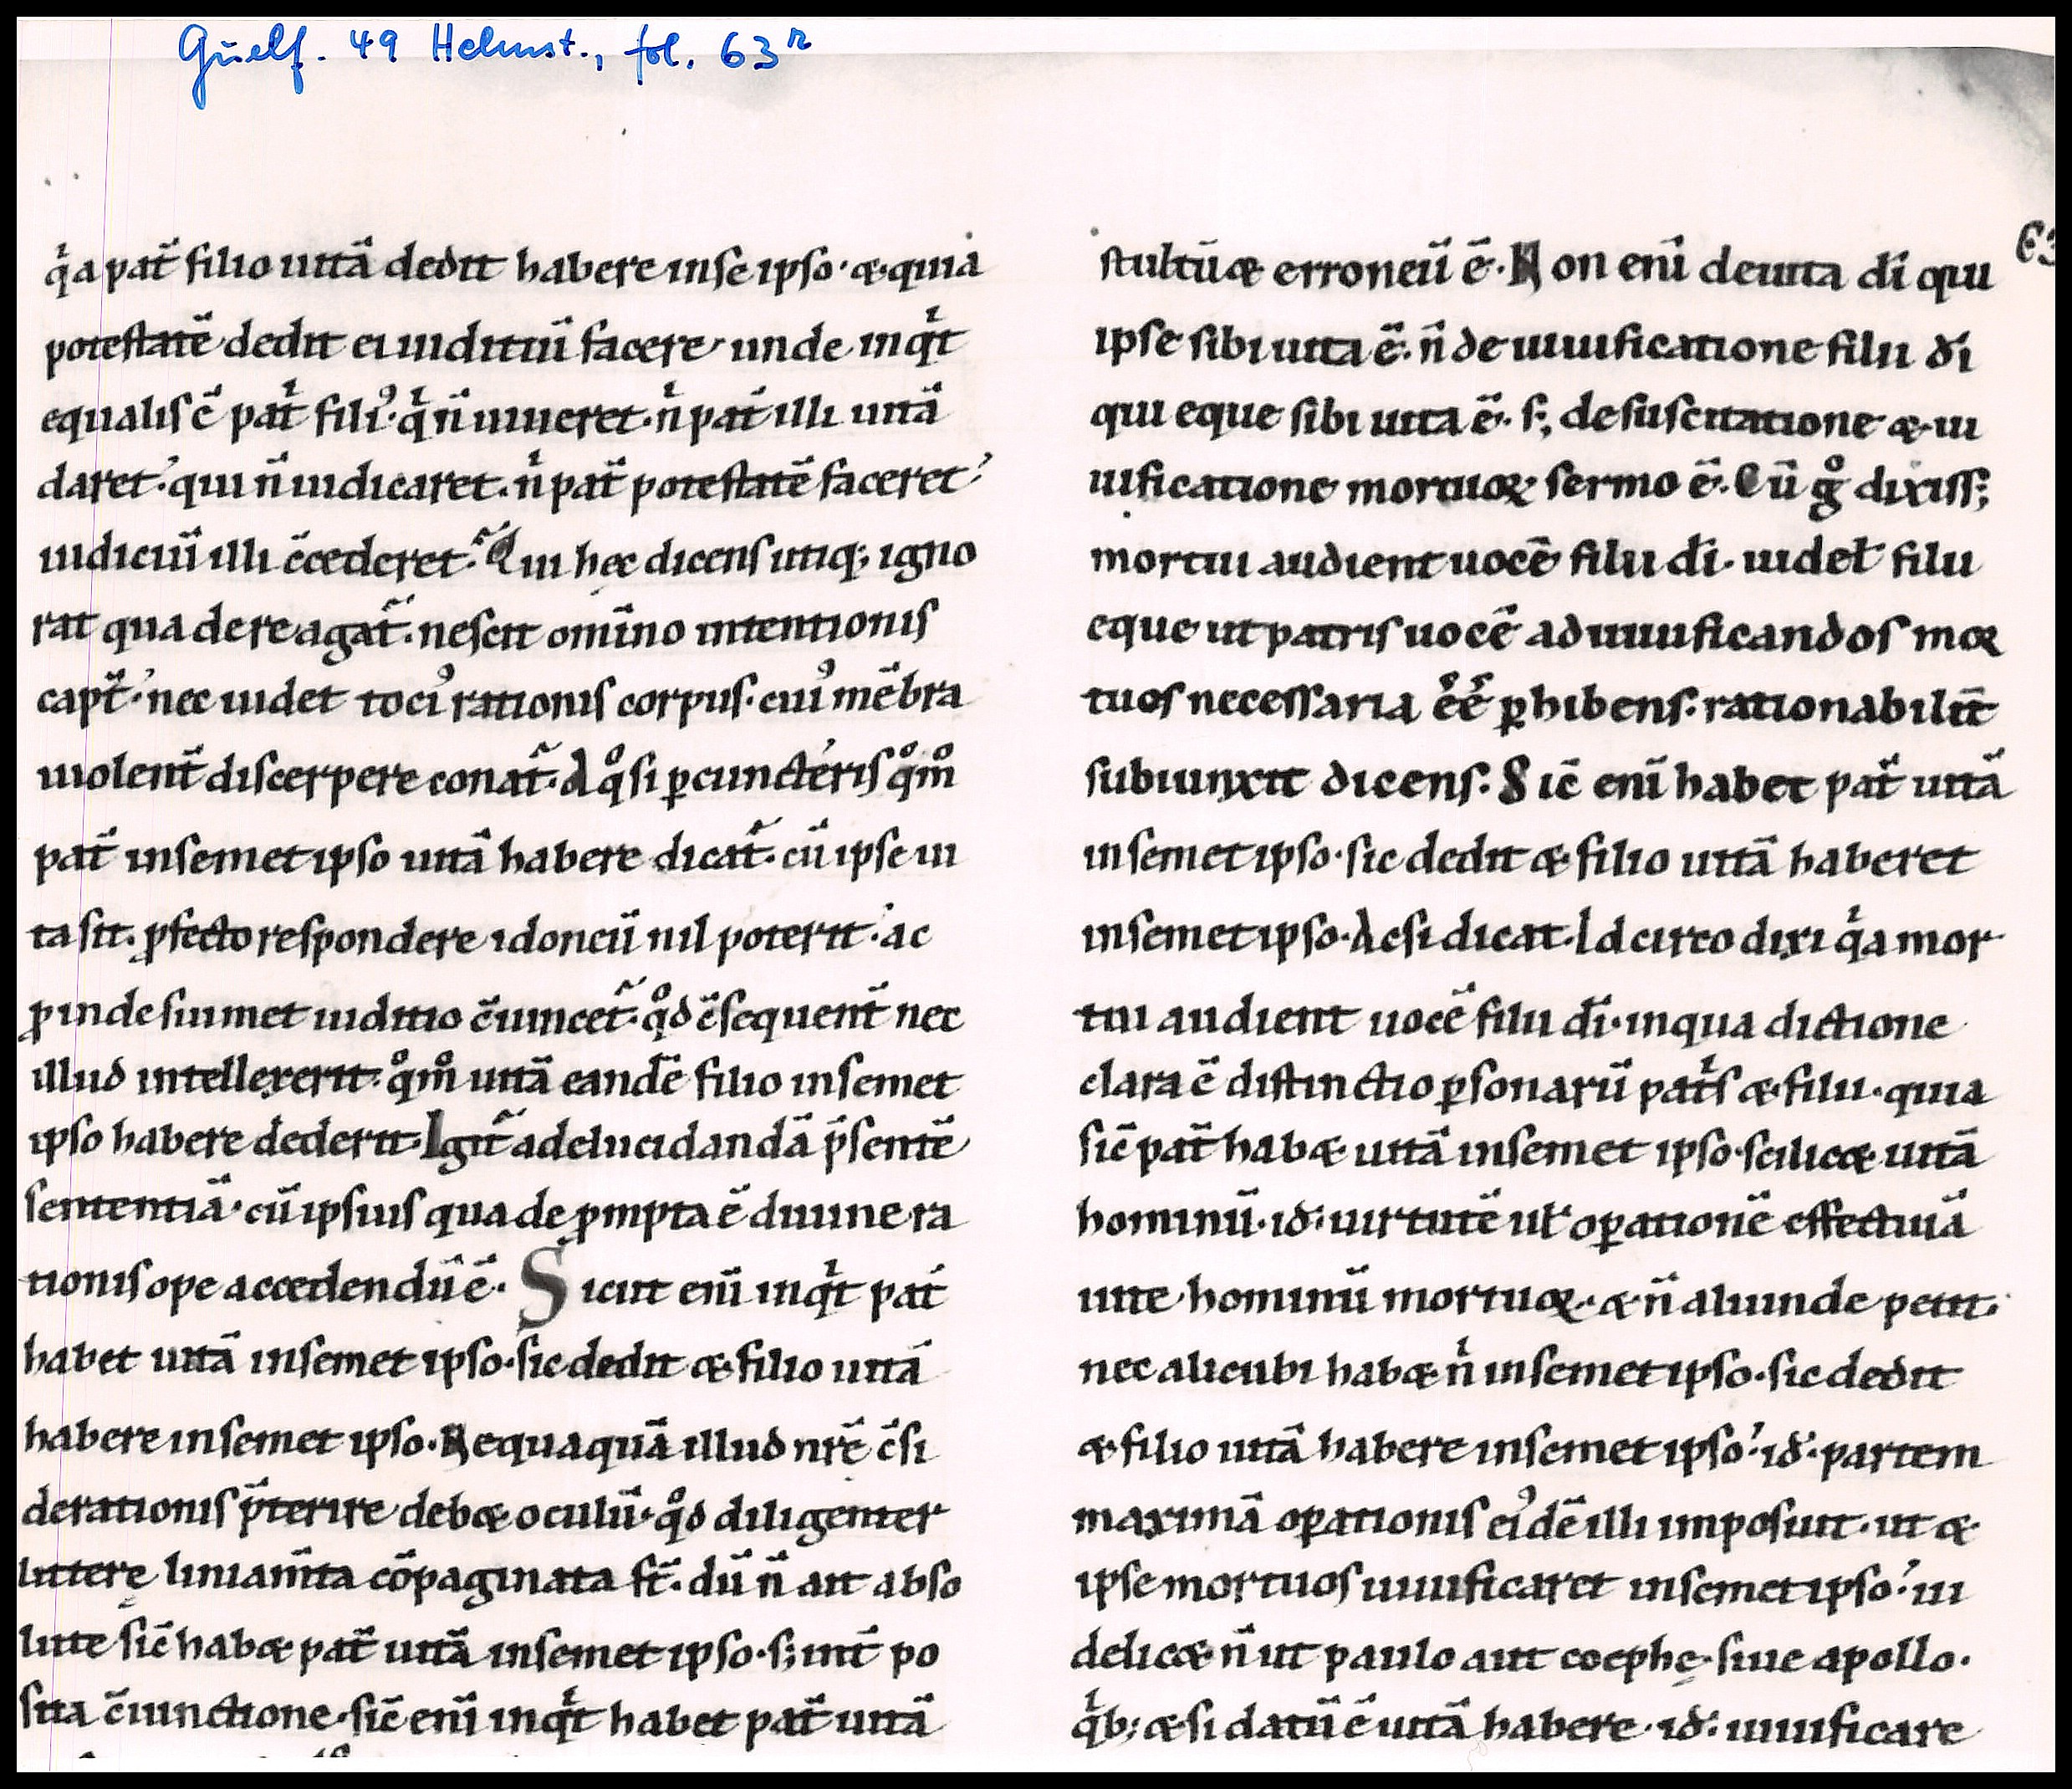 Guelf. 49 Helmst., fol. 63r
63
q̇a pat̄ filio uitā dedit habere inse ipso · & quia
potestatē dedit ei iuditiū facere · unde inq̇t
equalis ē pat̄ filiꝰ · q̇ n̄ uiueret · n̄ pat̄ illi uitā
daret · qui n̄ iudicaret · n̄ pat̄ potestatē faceret
iudiciū illi c̄cederet · Qui hęc dicens utiq; igno
rat qua de re agat̄ · nescit omīno intentionis
capt̄ · nec uidet tociꝰ rationis corpus · cuiꝰ mēbra
uiolent̄ discerpere conat̄ · A q̊ si ꝑcuncteris q̊m̊
pat̄ insemet ipso uitā habere dicat̄ · cū ipse ui
ta sit · ꝓfecto respondere idoneū nil poterit · ac
ꝓinde suimet iuditio c̄uincet̄ · q̊d c̄sequent̄ nec
illud intellexerit · q̊m̊ uitā eandē filio insemet
ipso habere dederit · Igit̄ adelucidandā p̄sentē
sententiā · cū ipsius qua de ꝓmpta ē diuine ra
tionis ope accedendū ē · Sicut enī inq̇t pat̄
habet uitā insemet ipso · sic dedit & filio uitā
habere insemet ipso · Nequaquā illud nr̄ē c̄si
derationis p̄terire debæ oculū · q̊d diligenter
litterę liniam̄ta cōpaginata st̄ · dū n̄ ait abso
lute sic̄ habæ pat̄ uitā insemet ipso · s; int̄ po
sita c̄iunctione · sic̄ enī inq̇t habet pat̄ uitā
stultū & erroneū ē · Non enī de uita dī qui
ipse sibi uita ē · n̄ de uiuificatione filii dī
qui eque sibi uita ē · s; de suscitatione & ui
uificatione mortuoꝝ sermo ē · Cū g̊ dixiss;
mortui audient uocē filii dī · uidel̄ filii
eque ut patris uocē ad uiuificandos moꝛ
tuos necessaria ēē ꝑhibens · rationabilit̄
subiunxit dicens · Sic̄ enī habet pat̄ uitā
insemet ipso · sic dedit & filio uitā haberet
insemet ipso · Ac si dicat · Idcirco dixi q̇a mor
tui audient uocē filii dī · inqua dictione
clara ē distinctio ꝑsonarū pat̄s & filii · quia
sic̄ pat̄ habæ uitā insemet ipso · scilicæ uitā
hominū · id · uirtutē ul̄ oꝑationē effectiuā
uite hominū mortuoꝝ · & n̄ aliunde petit ·
nec alicubi habæ n̄ insemet ipso · sic dedit
& filio uitā habere insemet ipso · id · partem
maximā oꝑationis eiꝰdē illi imposuit · ut &
ipse mortuos uiuificaret insemet ipso · ui
delicæ n̄ ut paulo aut coephę · siue apollo ·
q̇b; & si datū ē uitā habere · id · uiuificare